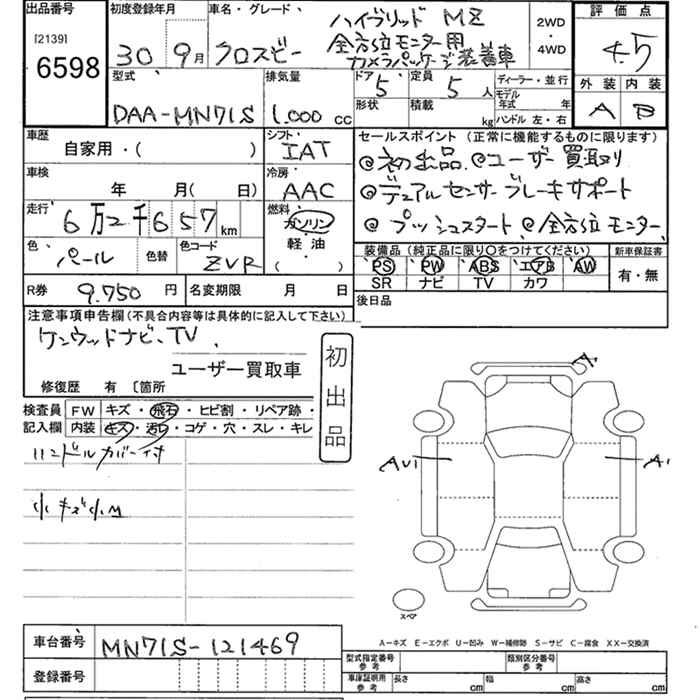 出品番号 初度登録年月 車名・グレード 評価点
[2139]
6598
30年9月 クロスビー ハイブリッド MZ 2WD
全方位モニター用 ・
カメラパッケージ装着車 4WD
4.5
型式 排気量 ドア 定員 ディーラー・並行 外装 内装
DAA-MN71S 1,000 cc 5 5人 モデル年式 年 A B
形状 積載 kg ハンドル 左・右
車歴 シフト セールスポイント(正常に機能するものに限ります)
自家用・( ) IAT
◎初出品 ◎ユーザー買取り
車検 冷房
年 月(日) AAC
◎デュアルセンサーブレーキサポート
走行 燃料
6万2千657km ガソリン
軽油
( )
◎プッシュスタート ◎全方位モニター
色 色替 色コード
パール ZVR
装備品(純正品に限り〇をつけてください) 新車保証書
PS PW ABS エアB AW 有・無
SR ナビ TV カワ
R券 9.750円 名変期限 月 日 後日品
注意事項申告欄(不具合内容等は具体的に記入して下さい)
ケンウッドナビ、TV、
ユーザー買取車
初出品
修復歴 有 〔箇所
検査員 FW キズ・飛石・ヒビ割・リペア跡・
記入欄 内装 キズ・汚レ・コゲ・穴・スレ・キレ
ハンドルカバー付
小キズ小M
A
AU1 A1
スペア
A-キズ E-エクボ U-凹み W-補修跡 S-サビ C-腐食 XX-交換済
車台番号 MN71S-121469
型式指定番号 参考 類別区分番号 参考
登録番号 車庫証明用 参考 長さ cm 幅 cm 高さ cm